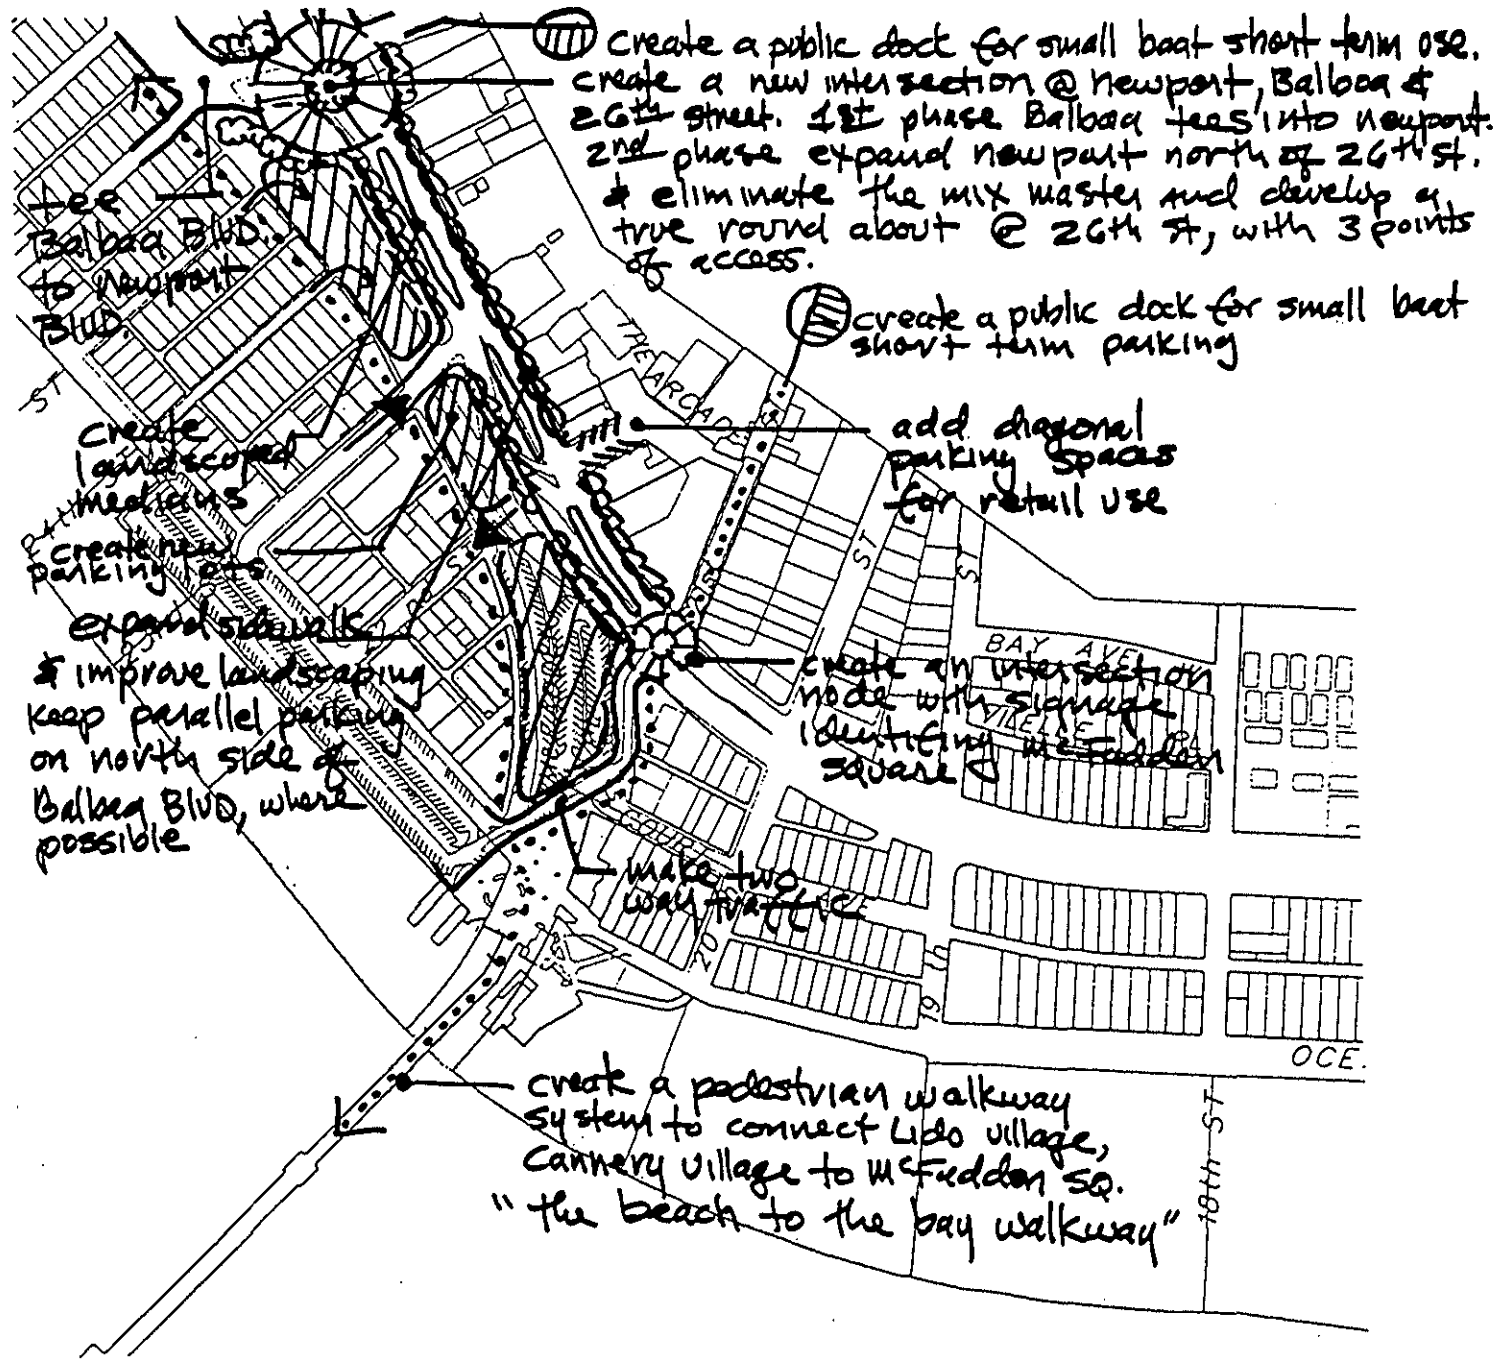 create a public dock for small boat short term use.
create a new intersection @ Newport, Balboa &
26th street. 1st phase Balboa tees into newport.
2nd phase expand newport north of 26th st.
& eliminate the mix master and develop a
true round about @ 26th st, with 3 points
of access.
tee
Balboa BLVD.
to Newport
BLVD.
create a public dock for small boat
short term parking
THE ARCADE
ST
add diagonal
parking spaces
for retail use
create
landscaped
medians
create new
parking lots
expand sidewalk
& improve landscaping
keep parallel parking
on north side of
Balboa BLVD, where
possible
ST
ST
BAY AVE
create an intersection
node with signage
identifying McFadden
square
make two
way traffic
COURT
20
19th
OCE.
18th ST
create a pedestrian walkway
system to connect Lido village,
Cannery village to McFadden SQ.
"the beach to the bay walkway"